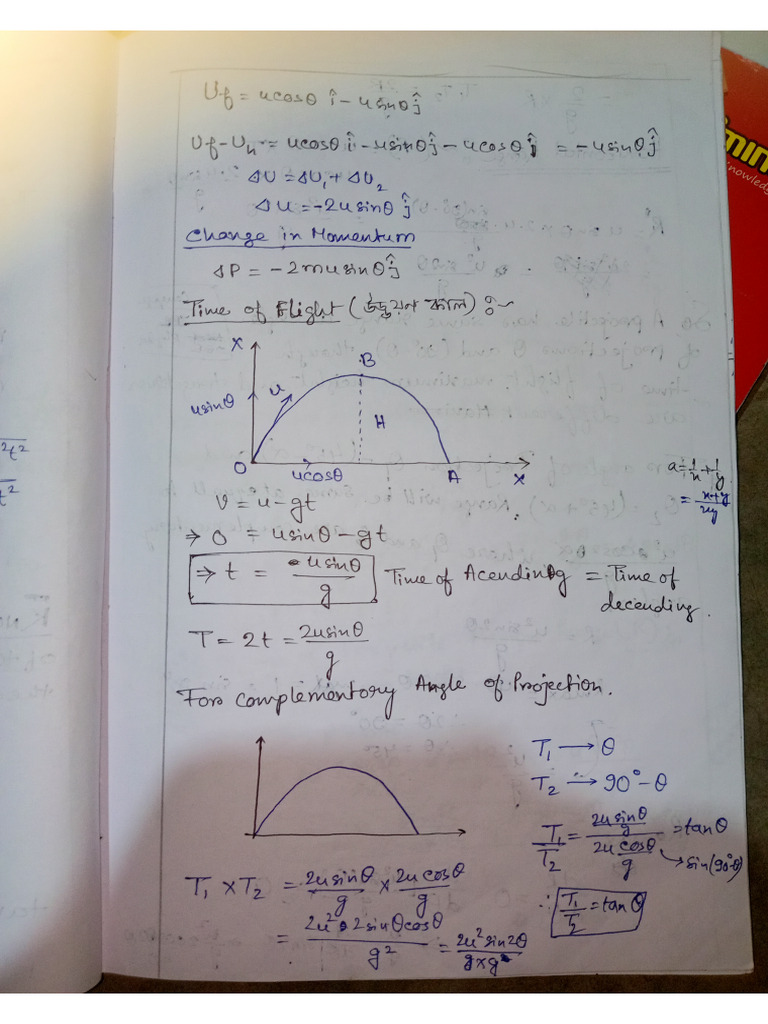 Uf = ucosθ î - usinθ ĵ
Uf - Uh = ucosθ î - usinθ ĵ - ucosθ î = -usinθ ĵ
ΔU = ΔU₁ + ΔU₂
ΔU = -2usinθ ĵ
Change in Momentum
ΔP = -2musinθ ĵ
Time of Flight (উড্ডয়ন কাল) :-
X
B
u
usinθ
H
O
ucosθ
A
X
a = 1/x + 1/y
= x+y/xy
V = u - gt
⇒ 0 = usinθ - gt
⇒ t = usinθ/g Time of Acending = Time of
decending.
T = 2t = 2usinθ/g
For complementory Angle of Projection.
T₁ → θ
T₂ → 90° - θ
T₁/T₂ = (2usinθ/g)/(2ucosθ/g) = tanθ
→ sin(90°-θ)
∴ T₁/T₂ = tanθ
T₁ × T₂ = 2usinθ/g × 2ucosθ/g
= 2u² 2sinθcosθ/g² = 2u²sin2θ/g×g